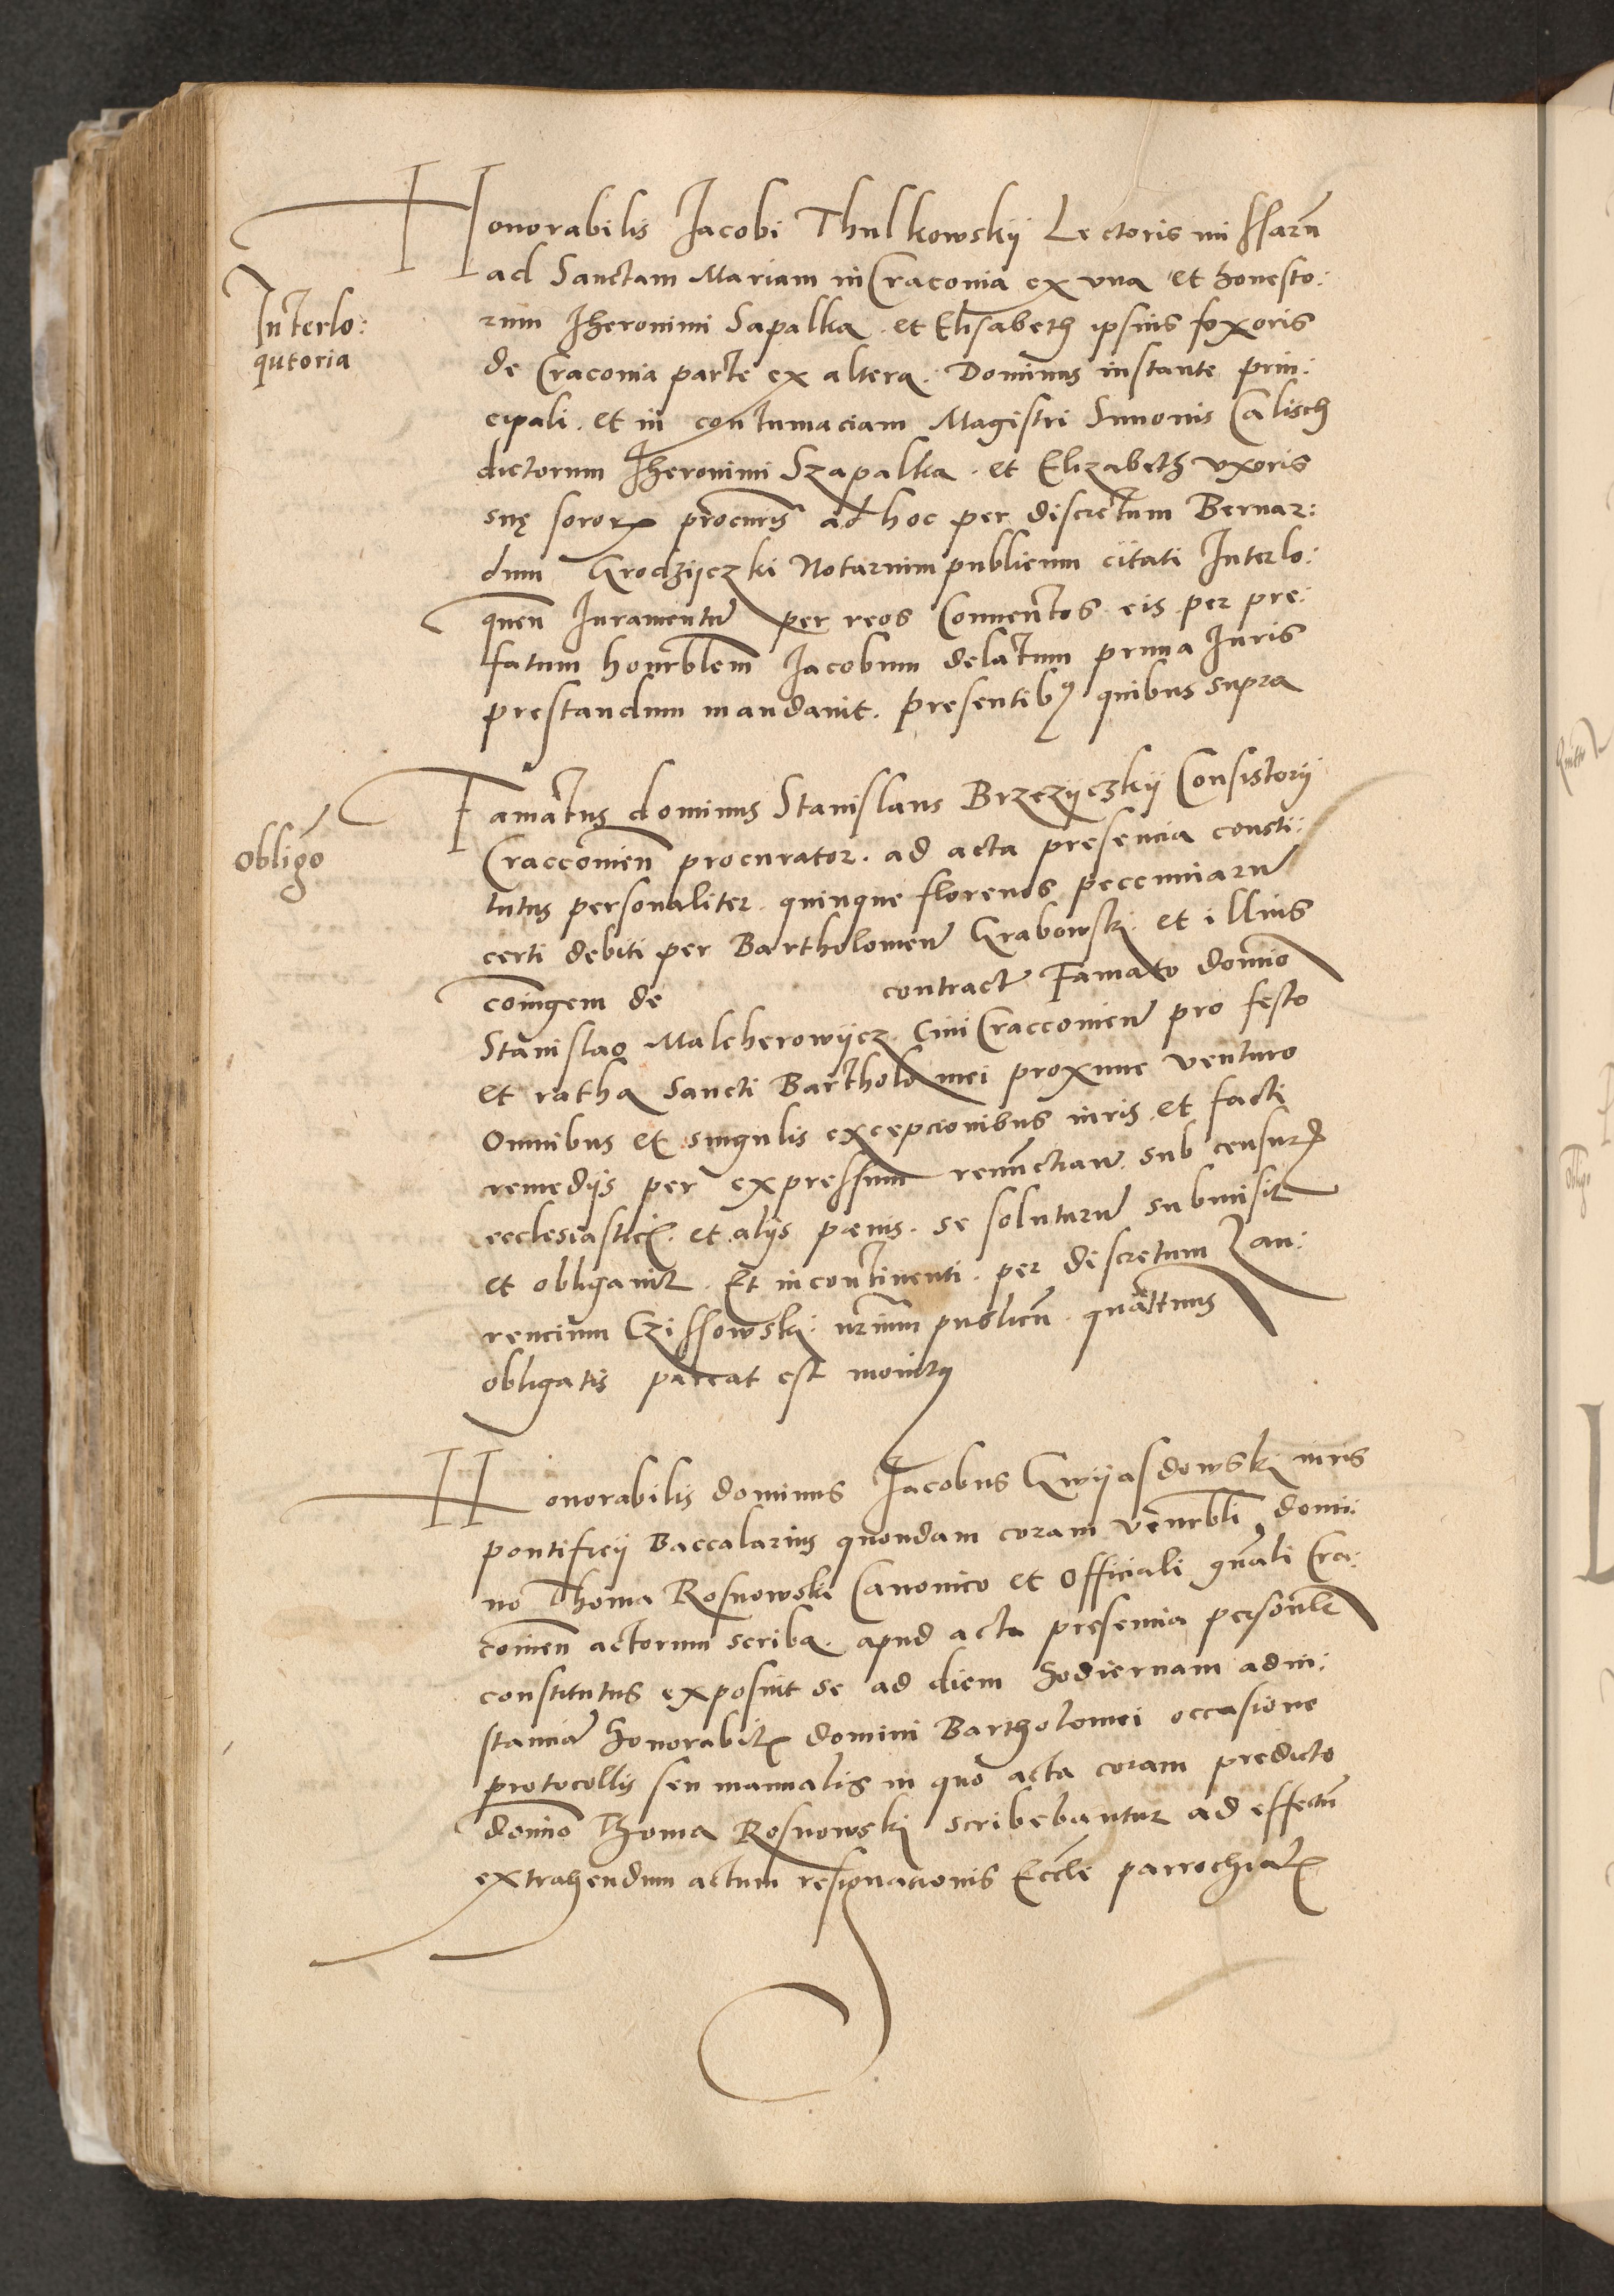 Honorabilis Jacobi Thulkowskij Lectoris missarũ
ad Sanctam Mariam in Craconia ex vna et honesto:
Interlo:
qutoria
rum Jheronimi Sapalka . et Elisabeth ipsius foxoris
de Craconia parte ex altera . Dominus instante prin:
cipali . et in contumaciam Magistri Simonis Calisch
dictorum Jheronimi Szapalka . et Elizabeth vxoris
suę soror procuris ad hoc per discretum Bernar:
dum Grodzijczki Notarium publicum citati Interlo:
quen Juramentũ per reos Conuentos eis per pre:
fatum honrblem Jacobum delatum prima Juris
prestandum mandauit . presentibꝰ quibus supra
Famatus dominus Stanislaus Brzezijczkij Consistorij
obligo
Cracconien procurator . ad acta presencia consti:
tutus personaliter . quinque florenos peccuniarũ
certi debiti per Bartholomeũ Grabowski . et illius
coniugem de contractũ Famato domino
Stanislao Malcherowijcz . Ciui Cracconieñ pro festo
et ratha Sancti Bartholomei proxime venturo
Omnibus et singulis excepcionibus iuris et facti
remedijs per expressum renunctiaũ . sub censuris
ecclesiasticis . et alijs pœnis . se soluturũ submisit
et obligauit . Et incontinenti . per discretum Lau:
rencium Czissowski : nrium publicũ . quattenus
obligatis pareat est monitꝰ
Honorabilis dominus Jacobus Gwijasdowski iuris
pontificij Baccalarius quondam coram Venerbli domi:
no Thoma Rosnowski Canonico et Officiali gnali Cra:
couien actorum scriba . apud acta presencia personlr
constitutus exposuit se ad diem hodiernam ad in:
stanciã honorabilis domini Bartholomei occasione
protocollis seu manualis in quo acta coram predicto
domino Thoma Rosnowski scribebantur ad effectũ
extrahendum actum resignationis Eccle parrochialis